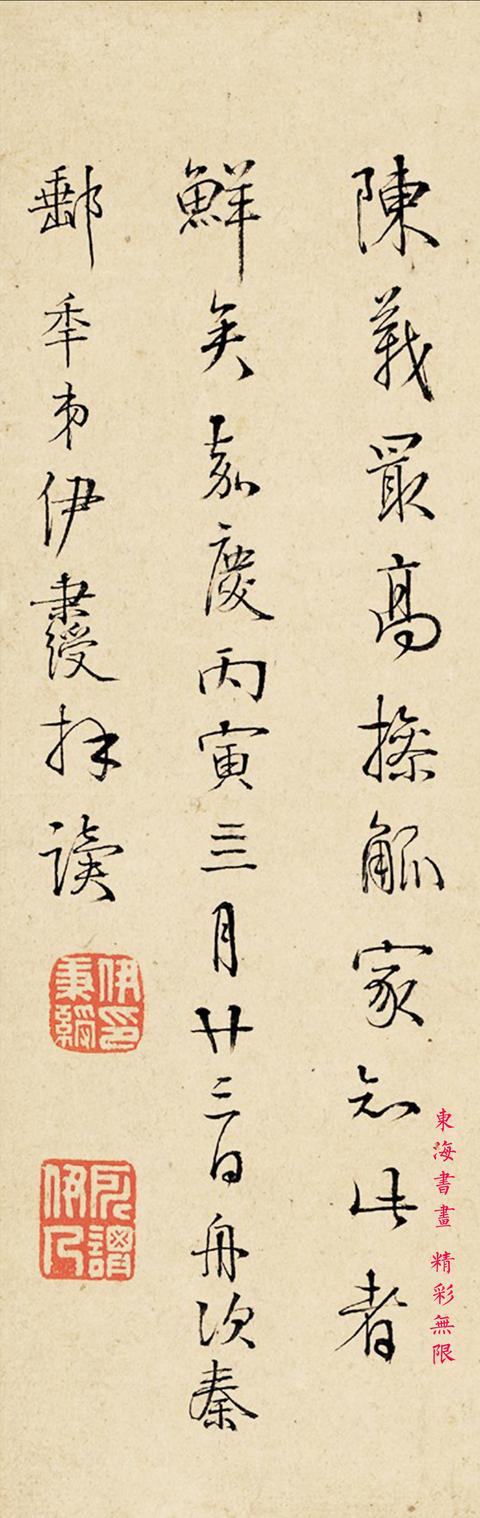 陳義最高操觚家知此者
鮮矣嘉慶丙寅三月廿三日舟次秦
郵年弟伊秉綬拜讀
伊秉綬印
東海書畫 精彩無限